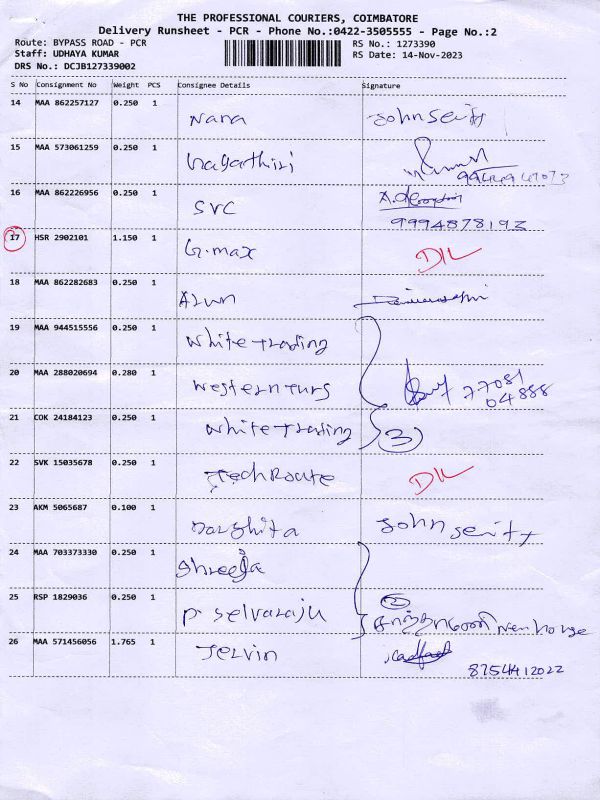 THE PROFESSIONAL COURIERS, COIMBATORE
Delivery Runsheet - PCR - Phone No.:0422-3505555 - Page No.:2
Route: BYPASS ROAD - PCR RS No.: 1273390
Staff: UDHAYA KUMAR RS Date: 14-Nov-2023
DRS No.: DCJB127339002
S No Consignment No Weight PCS Consignee Details Signature
14 MAA 862257127 0.250 1 Nara
15 MAA 573061259 0.250 1
16 MAA 862226956 0.250 1 SVC
9994878192
17 HSR 2902101 1.150 1 G.max DIL
18 MAA 862282683 0.250 1 Arun
19 MAA 944515556 0.250 1 White trading
20 MAA 288020694 0.280 1 77081
04888
21 COK 24184123 0.250 1 White trading 3
22 SVK 15035678 0.250 1 Tech Route DIL
23 AKM 5065687 0.100 1 Darshita
24 MAA 703373330 0.250 1 Shreeja
25 RSP 1829036 0.250 1 P. Selvaraju 2
26 MAA 571456056 1.765 1 Jervin
8754412022